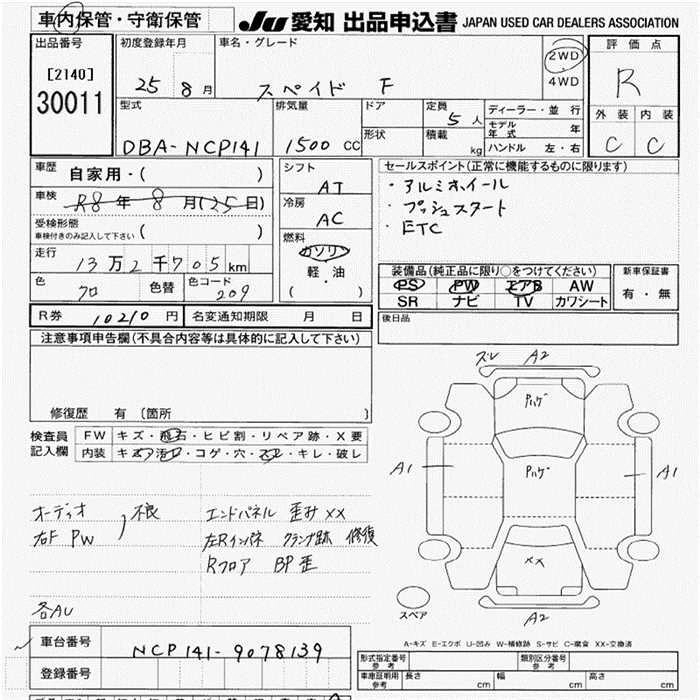 車内保管・守衛保管
JU 愛知 出品申込書 JAPAN USED CAR DEALERS ASSOCIATION
出品番号
[2140]
30011
初度登録年月
25 8 月
車名・グレード
スペイド F
2WD
4WD
評価点
R
外装 内装
C C
型式
DBA-NCP141
排気量
1500 cc
ドア
形状
定員
5 人
積載
kg
ディーラー・並行
モデル年式 年
ハンドル 左・右
車歴
自家用・( )
車検
R8年 8月(25日)
受検形態
車検付きのみ記入して下さい ( )
走行
13万2千705km
色
クロ
色替
色コード
209
シフト
AT
冷房
AC
燃料
ガソリン
軽・油
( )
セールスポイント(正常に機能するものに限ります)
・アルミホイール
・プッシュスタート
・ETC
装備品(純正品に限り○をつけてください)
PS PW エアB AW
SR ナビ TV カワシート
新車保証書
有・無
後日品
R券 10210 円
名変通知期限 月 日
注意事項申告欄(不具合内容等は具体的に記入して下さい)
修復歴 有 (箇所 )
検査員記入欄
FW キズ・飛石・ヒビ割・リペア跡・X要
内装 キズ・汚れ・コゲ・穴・スレ・キレ・破レ
オーディオ
右F PW
不良
エンドパネル 歪み XX
左Rインパネ クランプ跡 修復
Rフロア BP歪
各AU
ズレ A2
ハケ
A1
ハケ
A1
XX
A2
スペア
A-キズ E-エクボ U-凹み W-補修跡 S-サビ C-腐食 XX-交換済
車台番号
NCP141-9078139
登録番号
形式指定番号
参考
類別区分番号
参考
車庫証明用
参考
長さ cm
幅 cm
高さ cm